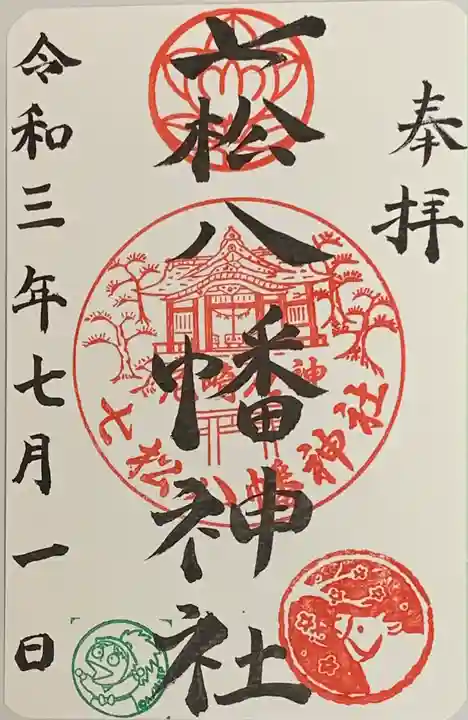 奉拝
七松八幡神社
七松八幡神社
令和三年七月一日